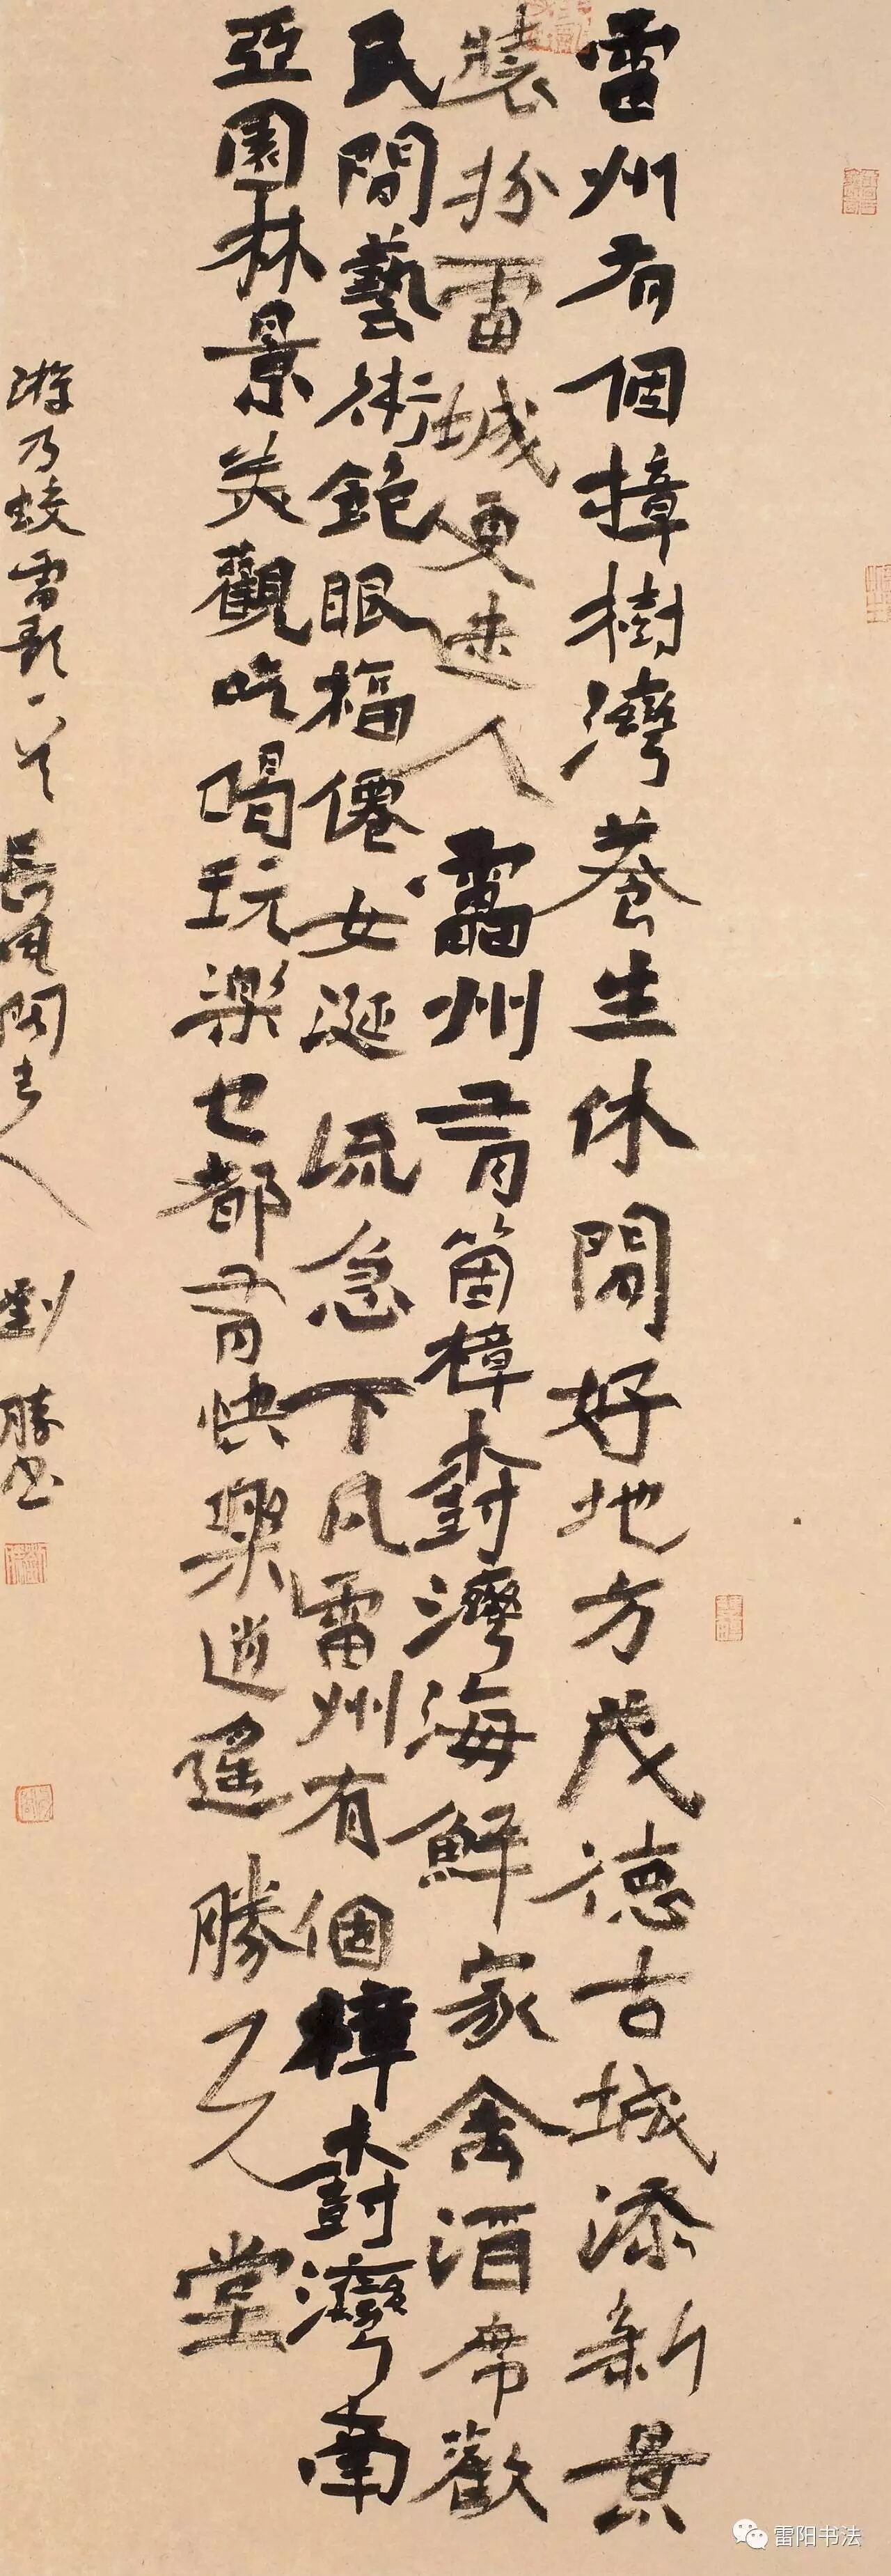 雷州有個樟樹灣養生休閒好地方茂德古城添新景
裝扮雷城更迷人雷州有箇樟樹灣海鮮家禽酒席歡
民間藝術飽眼福僊女涎流急下凡雷州有個樟樹灣南
亞園林景美觀吃喝玩樂也都有快樂逍遙勝天堂
游乃蛟雷歌一首長風閣主人劉勝書
雷阳书法